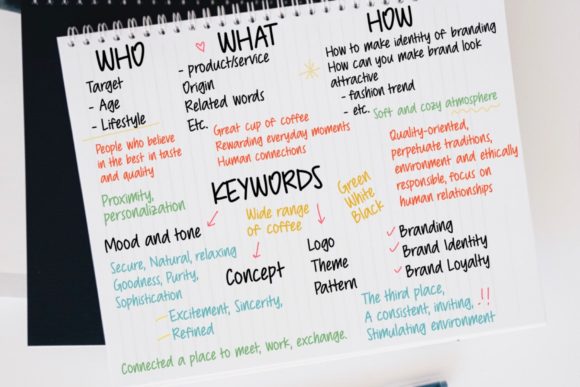 WHO
Target
- Age
- Lifestyle
People who believe
in the best in taste
and quality
Proximity,
personalization
WHAT
- product/service
Origin
Related words
Etc.
Great cup of coffee
Rewarding everyday moments
Human connections
HOW
How to make identity of branding
How can you make brand look
attractive
- fashion trend
- etc.
Soft and cozy atmosphere
Quality-oriented,
perpetuate traditions,
environment and ethically
responsible, focus on
human relationships
KEYWORDS
Green
White
Black
Wide range
of coffee
Mood and tone
Secure, Natural, relaxing
Goodness, Purity,
Sophistication
Concept
Excitement, Sincerity,
Refined
Logo
Theme
Pattern
Branding
Brand Identity
Brand Loyalty
The third place,
A consistent, inviting, !!
Stimulating environment
Connected a place to meet, work, exchange.